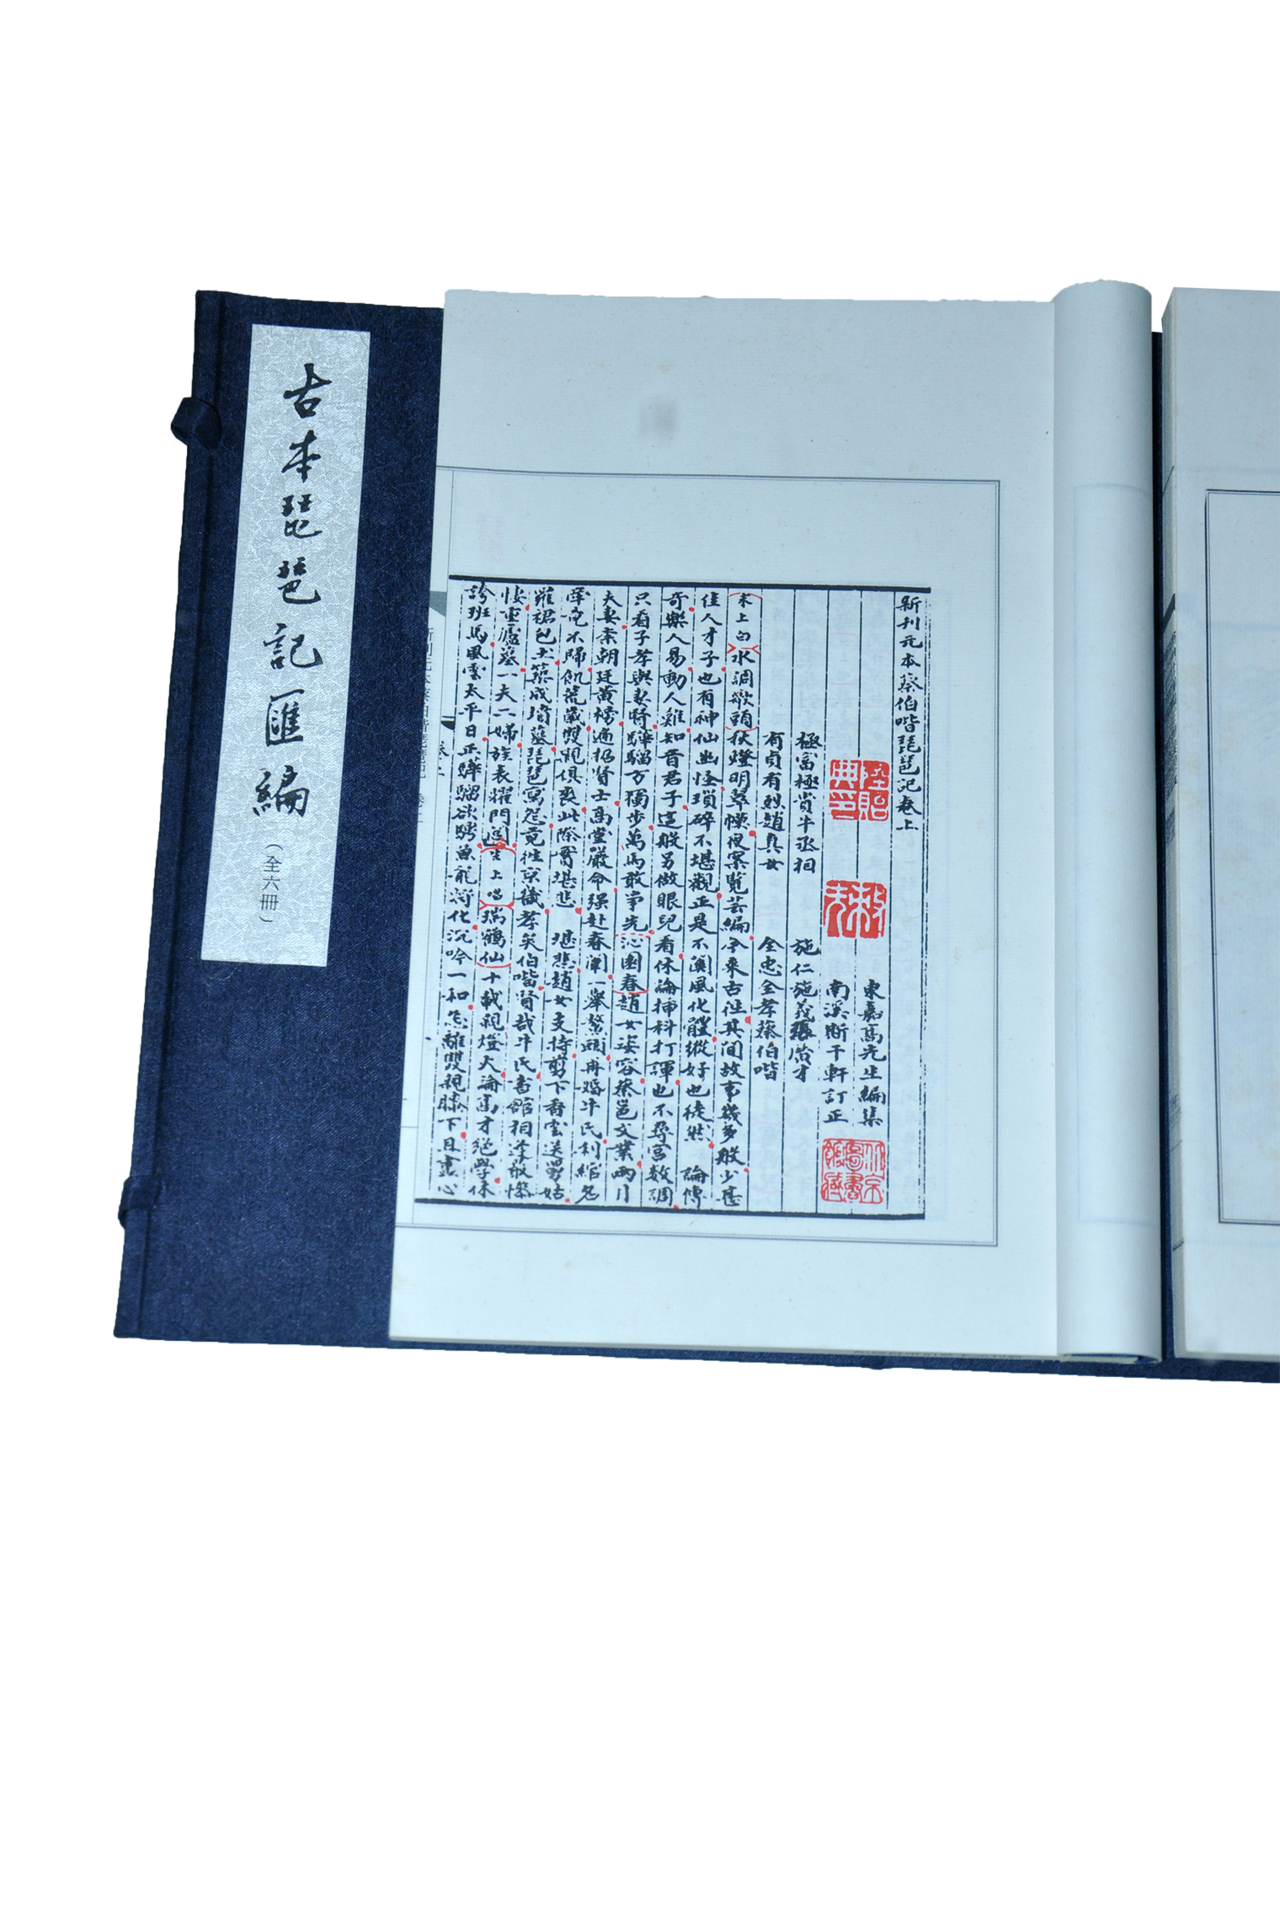 古本琵琶記匯編
（全六冊）
新刊元本蔡伯喈琵琶記卷上
東嘉高先生編集
南溪斯干軒訂正
陸貽典印
北京圖書館藏
極富極貴牛丞相 施仁施義張廣才
有貞有烈趙真女 全忠全孝蔡伯喈
末上白水調歌頭秋燈明翠幙夜案覽芸編今來古往其間故事幾多般少甚
佳人才子也有神仙幽怪瑣碎不堪觀正是不関風化體縱好也徒然 論傳
奇樂人易動人難知音君子這般另做眼兒看休論插科打諢也不尋宮數調
只看子孝與妻賢驊騮方獨步萬馬敢爭先沁園春趙女姿容蔡邕文業兩月
夫妻奈朝廷黃榜遍招賢士高堂嚴命强赴春闈一舉鰲頭再婚牛氏利綰名
牽竟不歸飢荒歲雙親俱喪此際實堪悲 堪悲趙女支持剪下香雲送舅姑
羅裙包土築成墳墓琵琶寫怨竟往京畿孝矣伯喈賢哉牛氏書館相逢最慘
悽重廬墓一夫二婦旌表耀門閭生上唱瑞鶴仙十載親燈火論高才絕學休
誇班馬風雲太平日正驊騮欲騁魚龍將化沉吟一和怎離雙親膝下且盡心